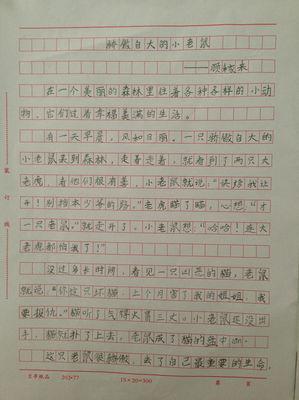 骄傲自大的小老鼠
在一个美丽的森林里住着各种各样的小动
物,它们过着幸福美满的生活。
有一天早晨,风和日丽。一只骄傲自大的
小老鼠来到森林,走着走着,就看到了两只大
老虎,看他们很有喜,小老鼠就说:“快给我让
开!别挡本少爷的路。”老虎瞄了瞄,心想:“才
一只老鼠。”就走开了。小老鼠想:“哈哈!连大
老虎都怕我了!”
没过多长时间,看见一只凶恶的猫,老鼠
就说:“你这只坏猫,上个月害了我的姐姐,我
要报仇。”猫听了气得火冒三丈。小老鼠还没出
手,猫就扑了上去,老鼠成了猫的盘中
这只老鼠很骄傲,丢了自己最重要的生命。
装
订
线
263-77 15×20=300 第 页